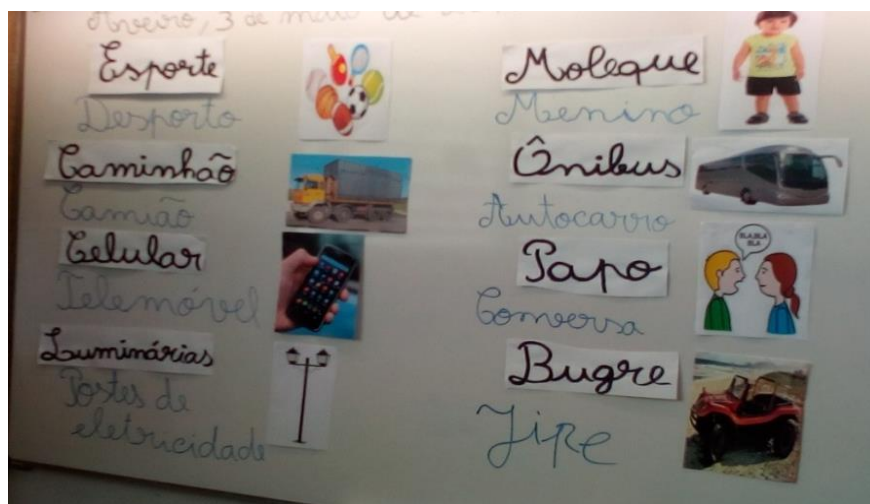 Aveiro, 3 de maio de
Esporte
Desporto
Caminhão
Camião
Celular
Telemóvel
Luminárias
Postes de
eletricidade
Moleque
Menino
Ônibus
Autocarro
Papo
BLA, BLA
BLA
Conversa
Bugre
Jipe